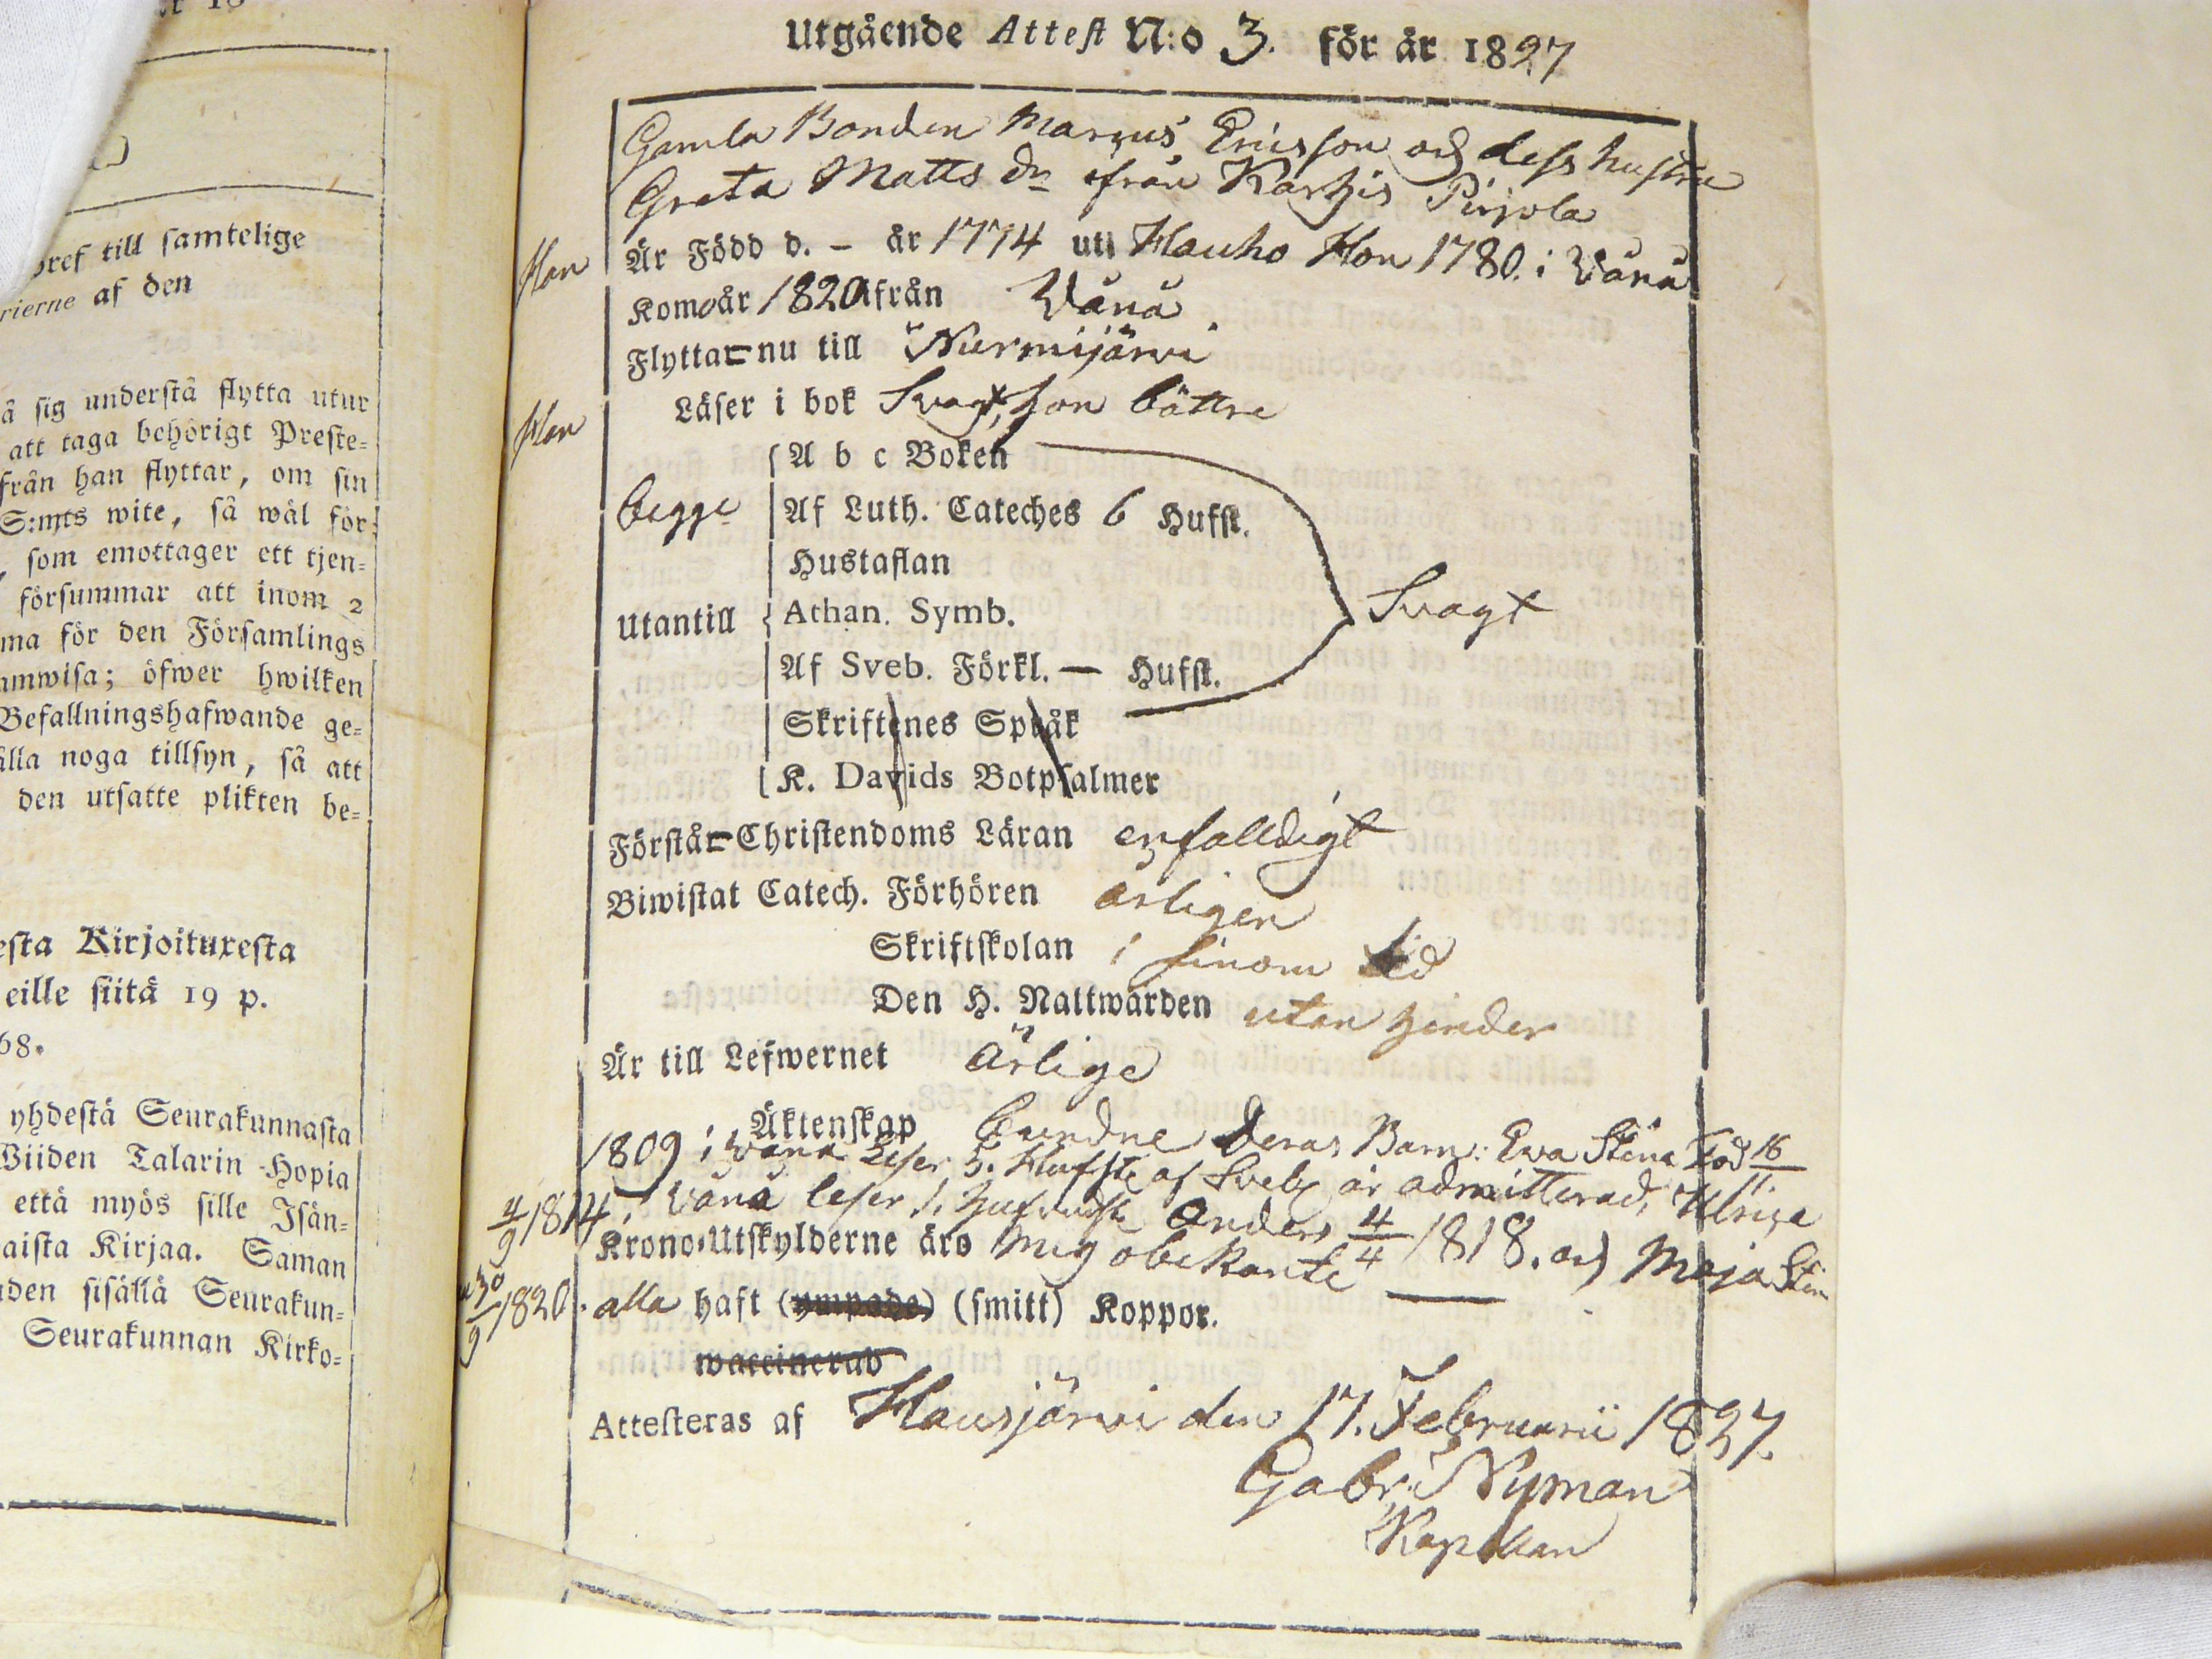 bref till samtelige
rierne af den
å sig understå flytta utur
att taga behörigt Preste-
från han flyttar, om sin
S:mts wite, så wäl för
, som emottager ett tjen-
försummar att inom 2
ma för den Församlings
amwisa; öfwer hwilken
Befallningshafwande ge-
älla noga tillsyn, så att
den utsatte plikten be-
esta Kirjoituxesta
eille siitä 19 p.
68.
yhdestä Seurakunnasta
Wiiden Talarin Hopia
että myös sille Isän-
aista Kirjaa. Saman
iden sisällä Seurakun-
Seurakunnan Kirko-
Utgående Attest N:o 3. för år 1827
Gamla Bonden Marcus Ericsson och dess hustru
Greta Matts dr ifrån Karhis Pirjola
Han Är Född d. – år 1774 uti Hauho Hon 1780. i Wånå
Kom år 1820 ifrån Wånå
Flytta nu till Nurmijärwi
Han Läser i bok Svagt, hon bättre
A b c Boken
begge Af Luth. Cateches 6 Hufst.
Hustaflan
Utantill Athan. Symb. Svagt
Af Sveb. Förkl. — Hufst.
Skriftenes Språk
K. Davids Botpsalmer
Förstå Christendoms Läran enfalldigt
Biwistat Catech. Förhören årligen
Skriftskolan i sinom tid
Den H. Nattwarden utan hinder
Är till Lefwernet ärlige
Äktenskap bundne Deras Barn: Ewa Stina Föd 16/11
1809 i Wånå Leser 5. Hufst af Sveb är admitterad, Ulrica
4/9 1814, Wånå leser 1. hufvudst Anders 4/4 1818. och Maja Stin
Krono-Utskylderne äro mig obekante
30/9 1820. alla haft (ympade) (smitt) Koppor.
waccinerad
Attesteras af Hausjärwi den 17. Februarii 1827.
Gabr. Nyman
Kapellan